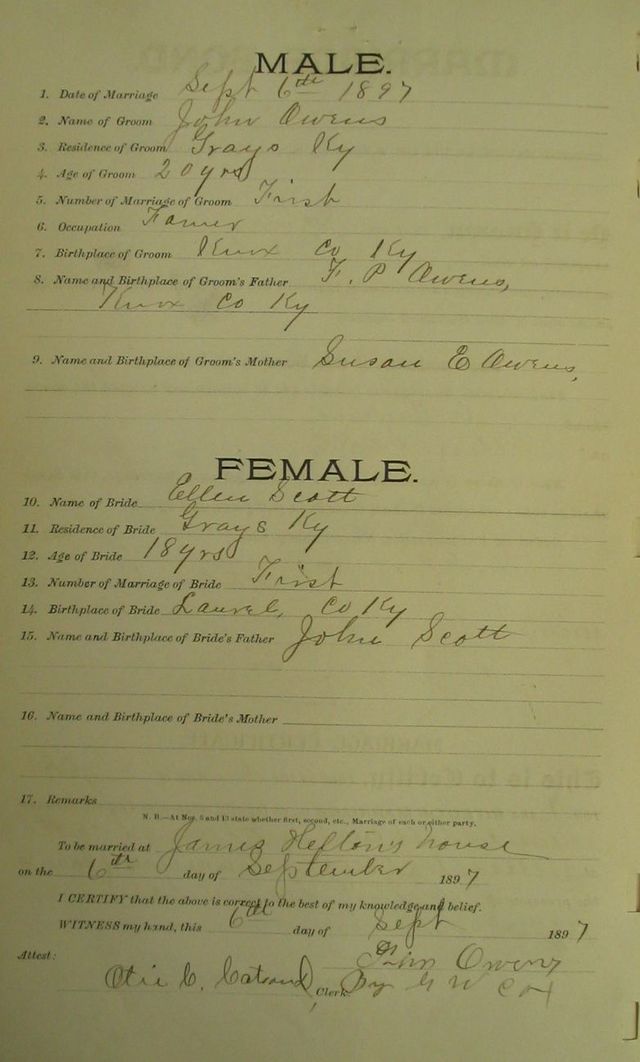 MALE.
1. Date of Marriage Sept 6th 1897
2. Name of Groom John Owens
3. Residence of Groom Grays Ky
4. Age of Groom 20 yrs
5. Number of Marriage of Groom First
6. Occupation Famer
7. Birthplace of Groom Knox Co Ky
8. Name and Birthplace of Groom's Father F. P Owens,
Knox Co Ky
9. Name and Birthplace of Groom's Mother Susan E Owens,
FEMALE.
10. Name of Bride Ellen Scott
11. Residence of Bride Grays Ky
12. Age of Bride 18 yrs
13. Number of Marriage of Bride First
14. Birthplace of Bride Laurel, Co Ky
15. Name and Birthplace of Bride's Father John Scott
16. Name and Birthplace of Bride's Mother
17. Remarks
N. B.—At Nos. 5 and 13 state whether first, second, etc., Marriage of each or either party.
To be married at James Helton's house
on the 6th day of September 1897
I CERTIFY that the above is correct to the best of my knowledge and belief.
WITNESS my hand, this 6th day of Sept 1897
John Owens
Attest:
Clerk. By G W Cox